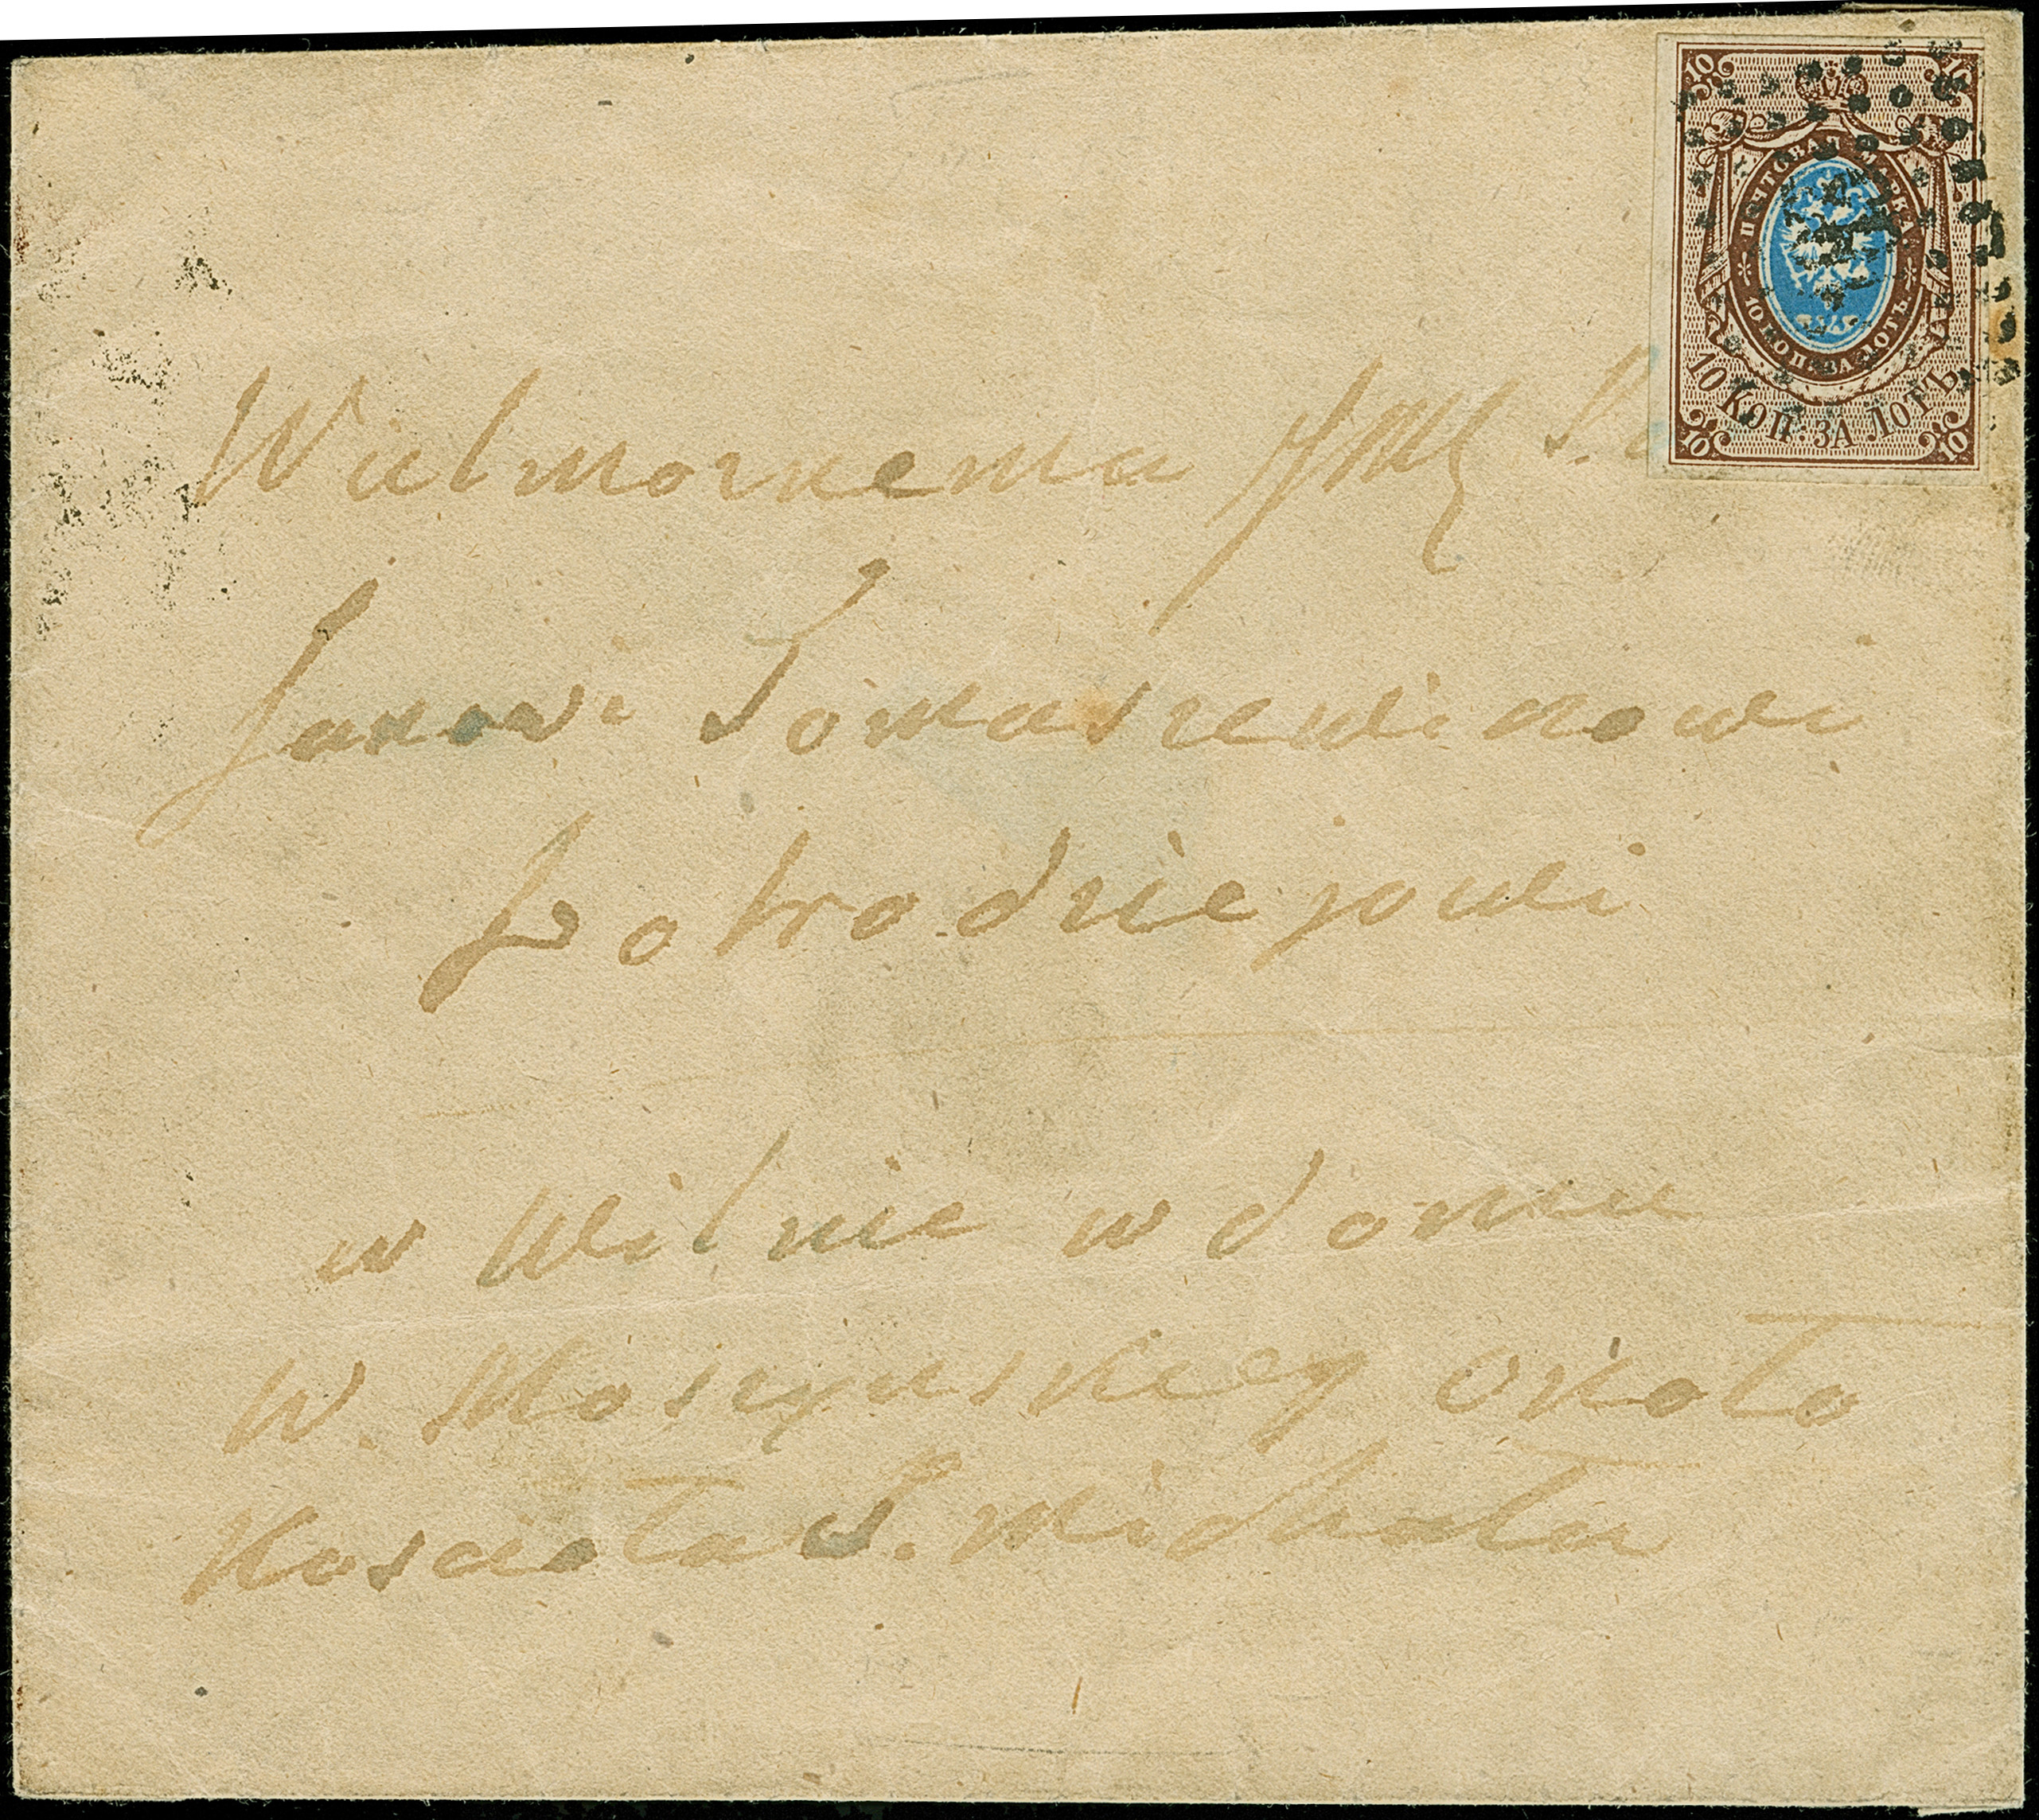 10 10
ПОЧТОВАЯ МАРКА
10 КОП. ЗА ЛОТЪ
10 КОП. ЗА ЛОТЪ
10 10
Wielmoznemu Jmć
Janowi Tomaszewiczowi
Dobrodziejowi
w Wilnie w domu
W. Moszynskiey około
Koscioła S. Michała